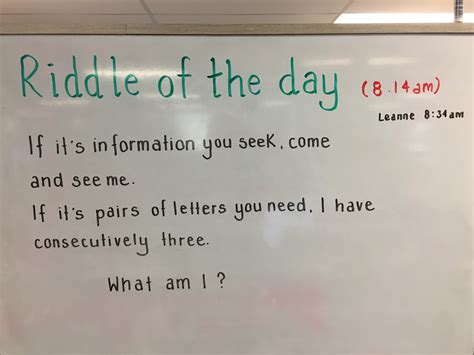 Riddle of the day (8.14am)
Leanne 8:34am
If it's information you seek, come
and see me.
If it's pairs of letters you need, I have
consecutively three.
What am I?